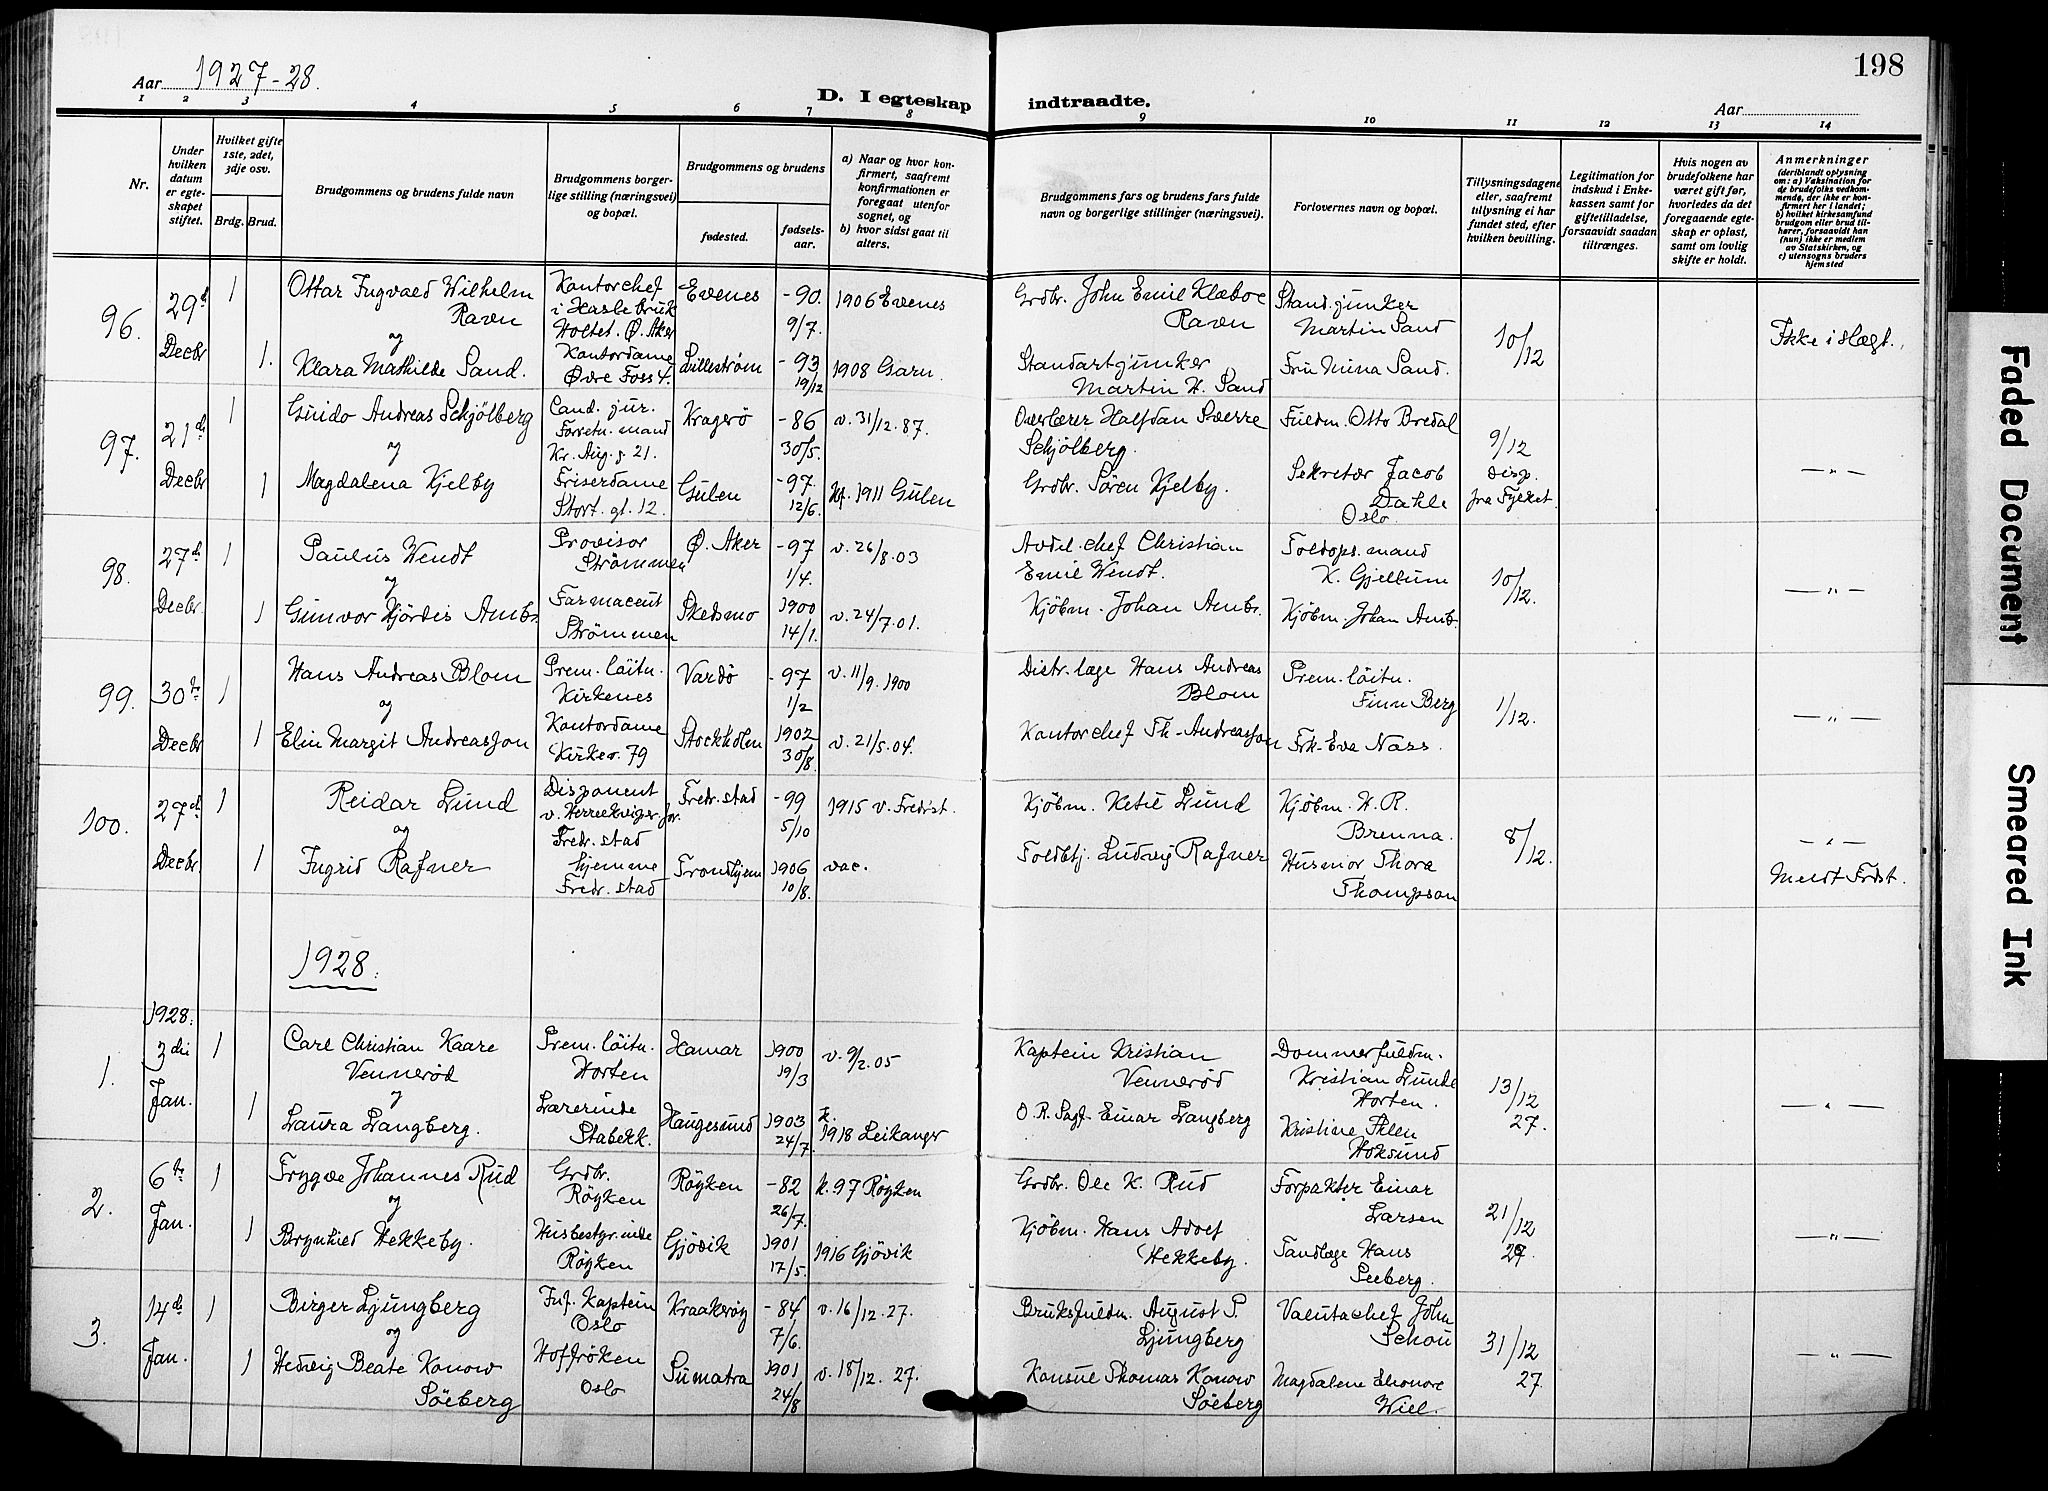 198
Aar 1927-28.
D. I egteskap indtraadte.
Aar
1 2 3 4 5 6 7 8 9 10 11 12 13 14
Nr.
Under hvilken datum er egteskapet stiftet.
Hvilket gifte 1ste, 2det, 3dje osv.
Brdg. Brud.
Brudgommens og brudens fulde navn
Brudgommens borgerlige stilling (næringsvei) og bopæl.
Brudgommens og brudens
fødested.
fødselsaar.
a) Naar og hvor konfirmert, saafremt konfirmationen er foregaat utenfor sognet, og
b) hvor sidst gaat til alters.
Brudgommens fars og brudens fars fulde navn og borgerlige stillinger (næringsvei).
Forlovernes navn og bopæl.
Tillysningsdagene eller, saafremt tillysning ei har fundet sted, efter hvilken bevilling.
Legitimation for indskud i Enkekassen samt for giftetilladelse, forsaavidt saadan tiltrænges.
Hvis nogen av brudefolkene har været gift før, hvorledes da det foregaaende egteskap er opløst, samt om lovlig skifte er holdt.
Anmerkninger (deriblandt oplysning om: a) Vaksination for de brudefolks vedkommende, der ikke er konfirmert her i landet; b) hvilket kirkesamfund brudgom eller brud tilhører, forsaavidt han (hun) ikke er medlem av Statskirken, og c) utensogns bruders hjemsted
96. 29d Decbr 1 Ottar Ingvald Wilhelm Ravn Kontorchef i Hasle bruk Holtet. Ø. Aker Evenes -90. 9/7. 1906 Evenes Grdbr. John Emil Klæboe Ravn Stand.junker Martin Sand 10/12 Ikke i slægt.
og
1. Klara Mathilde Sand. Kontordame Øvre Foss 4. Lillestrøm -93 19/12 1908 Garn. Standartjunker Martin H. Sand Fru Mina Sand.
97. 21d Decbr 1 Guido Andreas Schjölberg Cand. jur. Forretn. mand Kr. Aug. g. 21. Kragerö -86 30/5. v. 31/12. 87. Overlærer Halfdan Sverre Schjölberg. Fuldm. Otto Bredal 9/12 disp. fra Fylket. —"—
og
1 Magdalena Kjelby Friserdame Stort. gt. 12. Gulen -97. 12/6. kf. 1911 Gulen Grdbr. Søren Kjelby. Sekretær Jacob Dahle Oslo.
98. 27d Decbr. 1 Paulus Wendt Provisor Strömmen Ø. Aker -97 1/4. v. 26/8. 03 Avdel. chef Christian Emil Wendt. Toldops. mand K. Gjellum 10/12. —"—
og
1 Gunvor Hjördis Ambs. Farmaceut Strömmen Skedsmo 1900 14/1. v. 24/7. 01. Kjöbm. Johan Ambs. Kjöbm. Johan Ambs.
99. 30te Decbr 1 Hans Andreas Blom Prem. löitn. Kirkenes Vardö -97 1/2 v. 11/9. 1900 Distr. læge Hans Andreas Blom Prem. löitn. Finn Berg 1/12. —"—
og
1 Elin Margit Andreasson Kontordame Kirkev. 79 Stockholm 1902 30/8. v. 21/5. 04. Kontorchef Th. Andreasson Frk. Eva Næss.
100. 27d Decbr. 1 Reidar Lund Disponent v. Herreekviper.for. Fredr. stad Fredr. stad -99 5/10 1915 v. Fredrst. Kjöbm. Ketil Lund Kjöbm. H. R. Brenna. 8/12. —"—
og
1 Ingrid Rafner hjemme Fredr. stad Trondhjem 1906 10/8. vac. Toldbtj. Ludvig Rafner Husmor Thora Thompson Meldt Frdst.
1928.
1928.
1. 3die Jan. 1 Carl Christian Kaare Vennerød Prem. löitn. Horten Hamar 1900 19/3 v. 9/2. 05 Kaptein Kristian Vennerød Dommerfuldm. Kristian Lunde Horten. 13/12 27. —"—
og
1 Laura Langberg. Lærerinde Stabekk. Haugesund 1903 24/7. k. 1918 Leikanger O. R. Sagf. Einar Langberg Kristine Thlen Hoksund
2. 6te Jan. 1 Trygve Johannes Rud Grdbr. Röyken Röyken -82 26/7. k. 97 Röyken Grdbr. Ole K. Rud Forpakter Einar Larsen 21/12 27. —"—
og
1 Brynhild Hekkeby. Husbestyr.inde Röyken Gjövik 1901 17/5. 1916 Gjövik Kjöbm. Hans Adolf Hekkeby. Tandlæge Hans Seeberg.
3. 14d Jan. 1 Birger Ljungberg Inf. Kaptein Oslo Kraakeröy -84 7/6. v. 16/12. 27. Bruksfuldm. August P. Ljungberg Valutachef John Schou 31/12 27. —"—
og
1 Hedvig Beate Konow Söeberg Hoffröken Oslo Sumatra 1901 24/8 v. 18/12. 27. Konsul Thomas Konow Söeberg Magdalene Elonore Wiel.
Faded Document
Smeared Ink